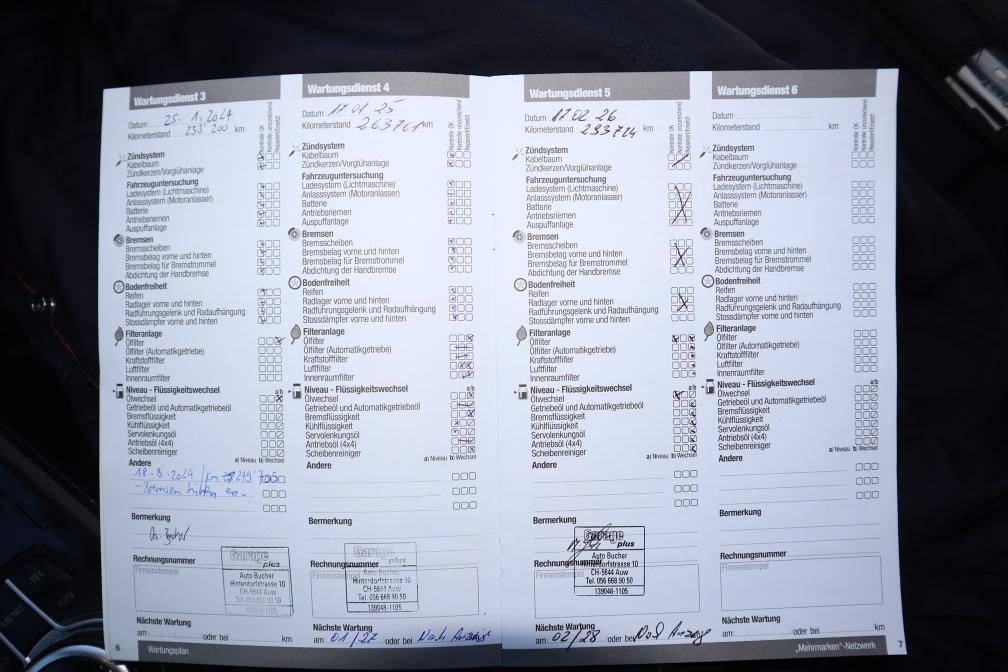 Wartungsdienst 3
Datum 25. 1. 2024
Kilometerstand 233'200 km
Kontrolle: OK
Kontrolle: unzureichend
Repariert/Ersetzt
Zündsystem
Kabelbaum
Zündkerzen/Vorglühanlage
Fahrzeuguntersuchung
Ladesystem (Lichtmaschine)
Anlasssystem (Motoranlasser)
Batterie
Antriebsriemen
Auspuffanlage
Bremsen
Bremsscheiben
Bremsbelag vorne und hinten
Bremsbelag für Bremstrommel
Abdichtung der Handbremse
Bodenfreiheit
Reifen
Radlager vorne und hinten
Radführungsgelenk und Radaufhängung
Stossdämpfer vorne und hinten
Filteranlage
Ölfilter
Ölfilter (Automatikgetriebe)
Kraftstofffilter
Luftfilter
Innenraumfilter
Niveau - Flüssigkeitswechsel a/b
Ölwechsel
Getriebeöl und Automatikgetriebeöl
Bremsflüssigkeit
Kühlflüssigkeit
Servolenkungsöl
Antriebsöl (4x4)
Scheibenreiniger
a) Niveau b) Wechsel
Andere
18-8-2024 / km
- Bremsen hinten
Bemerkung
Rechnungsnummer
Firmenstempel
Garage
plus
Auto Bucher
Hinterdorfstrasse 10
CH-5644 Auw
Tel. 056 668 90 50
139048-1105
Nächste Wartung
am oder bei km
6 Wartungsplan
Wartungsdienst 4
Datum 17 01 25
Kilometerstand 263761 km
Kontrolle: OK
Kontrolle: unzureichend
Repariert/Ersetzt
Zündsystem
Kabelbaum
Zündkerzen/Vorglühanlage
Fahrzeuguntersuchung
Ladesystem (Lichtmaschine)
Anlasssystem (Motoranlasser)
Batterie
Antriebsriemen
Auspuffanlage
Bremsen
Bremsscheiben
Bremsbelag vorne und hinten
Bremsbelag für Bremstrommel
Abdichtung der Handbremse
Bodenfreiheit
Reifen
Radlager vorne und hinten
Radführungsgelenk und Radaufhängung
Stossdämpfer vorne und hinten
Filteranlage
Ölfilter
Ölfilter (Automatikgetriebe)
Kraftstofffilter
Luftfilter
Innenraumfilter
Niveau - Flüssigkeitswechsel a/b
Ölwechsel
Getriebeöl und Automatikgetriebeöl
Bremsflüssigkeit
Kühlflüssigkeit
Servolenkungsöl
Antriebsöl (4x4)
Scheibenreiniger
a) Niveau b) Wechsel
Andere
Bemerkung
Rechnungsnummer
Firmenstempel
Garage
plus
Auto Bucher
Hinterdorfstrasse 10
CH-5644 Auw
Tel. 056 668 90 50
139048-1105
Nächste Wartung
am 01/27 oder bei Nach Anzeige
Wartungsdienst 5
Datum 17 02 26
Kilometerstand 293724 km
Kontrolle: OK
Kontrolle: unzureichend
Repariert/Ersetzt
Zündsystem
Kabelbaum
Zündkerzen/Vorglühanlage
Fahrzeuguntersuchung
Ladesystem (Lichtmaschine)
Anlasssystem (Motoranlasser)
Batterie
Antriebsriemen
Auspuffanlage
Bremsen
Bremsscheiben
Bremsbelag vorne und hinten
Bremsbelag für Bremstrommel
Abdichtung der Handbremse
Bodenfreiheit
Reifen
Radlager vorne und hinten
Radführungsgelenk und Radaufhängung
Stossdämpfer vorne und hinten
Filteranlage
Ölfilter
Ölfilter (Automatikgetriebe)
Kraftstofffilter
Luftfilter
Innenraumfilter
Niveau - Flüssigkeitswechsel a/b
Ölwechsel
Getriebeöl und Automatikgetriebeöl
Bremsflüssigkeit
Kühlflüssigkeit
Servolenkungsöl
Antriebsöl (4x4)
Scheibenreiniger
a) Niveau b) Wechsel
Andere
Bemerkung
Rechnungsnummer
Firmenstempel
Garage
plus
Auto Bucher
Hinterdorfstrasse 10
CH-5644 Auw
Tel. 056 668 90 50
139048-1105
Nächste Wartung
am 02/28 oder bei Nach Anzeige
Wartungsdienst 6
Datum
Kilometerstand km
Kontrolle: OK
Kontrolle: unzureichend
Repariert/Ersetzt
Zündsystem
Kabelbaum
Zündkerzen/Vorglühanlage
Fahrzeuguntersuchung
Ladesystem (Lichtmaschine)
Anlasssystem (Motoranlasser)
Batterie
Antriebsriemen
Auspuffanlage
Bremsen
Bremsscheiben
Bremsbelag vorne und hinten
Bremsbelag für Bremstrommel
Abdichtung der Handbremse
Bodenfreiheit
Reifen
Radlager vorne und hinten
Radführungsgelenk und Radaufhängung
Stossdämpfer vorne und hinten
Filteranlage
Ölfilter
Ölfilter (Automatikgetriebe)
Kraftstofffilter
Luftfilter
Innenraumfilter
Niveau - Flüssigkeitswechsel a/b
Ölwechsel
Getriebeöl und Automatikgetriebeöl
Bremsflüssigkeit
Kühlflüssigkeit
Servolenkungsöl
Antriebsöl (4x4)
Scheibenreiniger
a) Niveau b) Wechsel
Andere
Bemerkung
Rechnungsnummer
Firmenstempel
Nächste Wartung
am oder bei km
„Mehrmarken"-Netzwerk 7
TEL
NAV
MENU